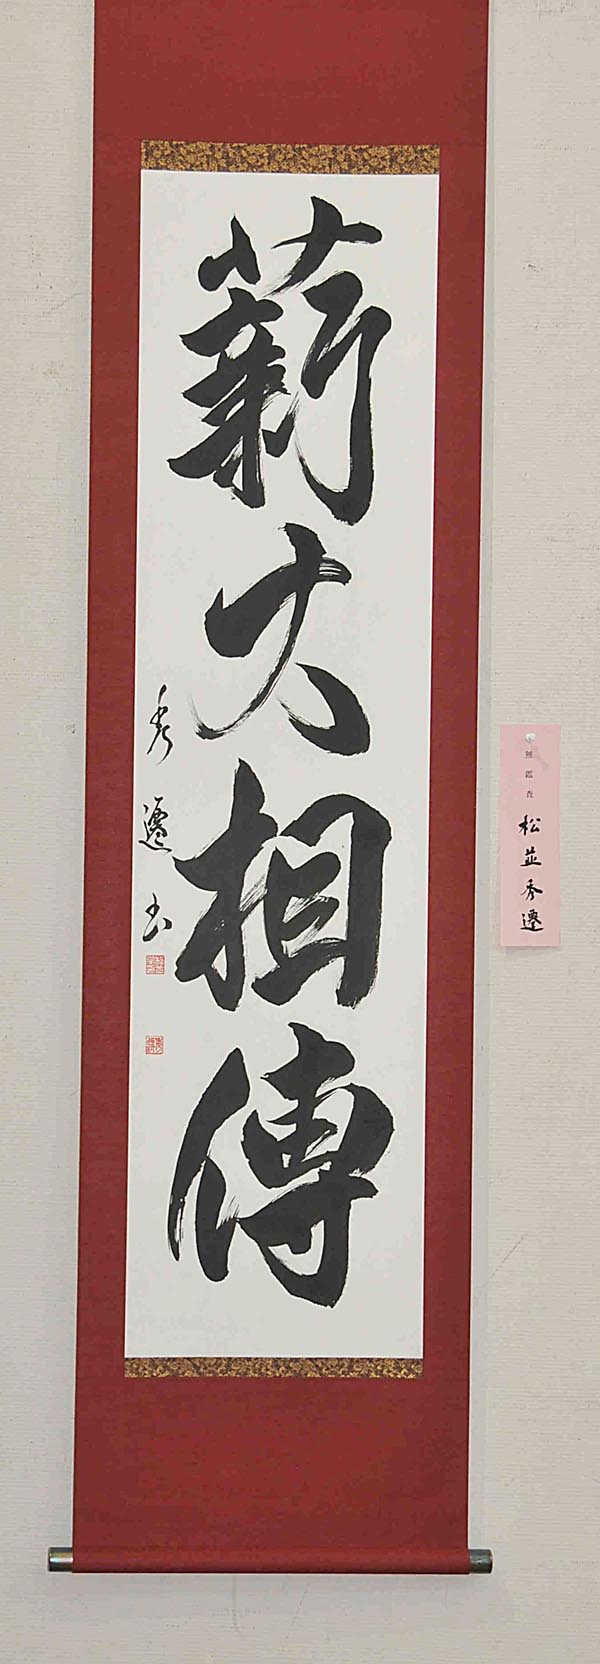 薪火相傳
秀遷書
無鑑査
松並秀遷